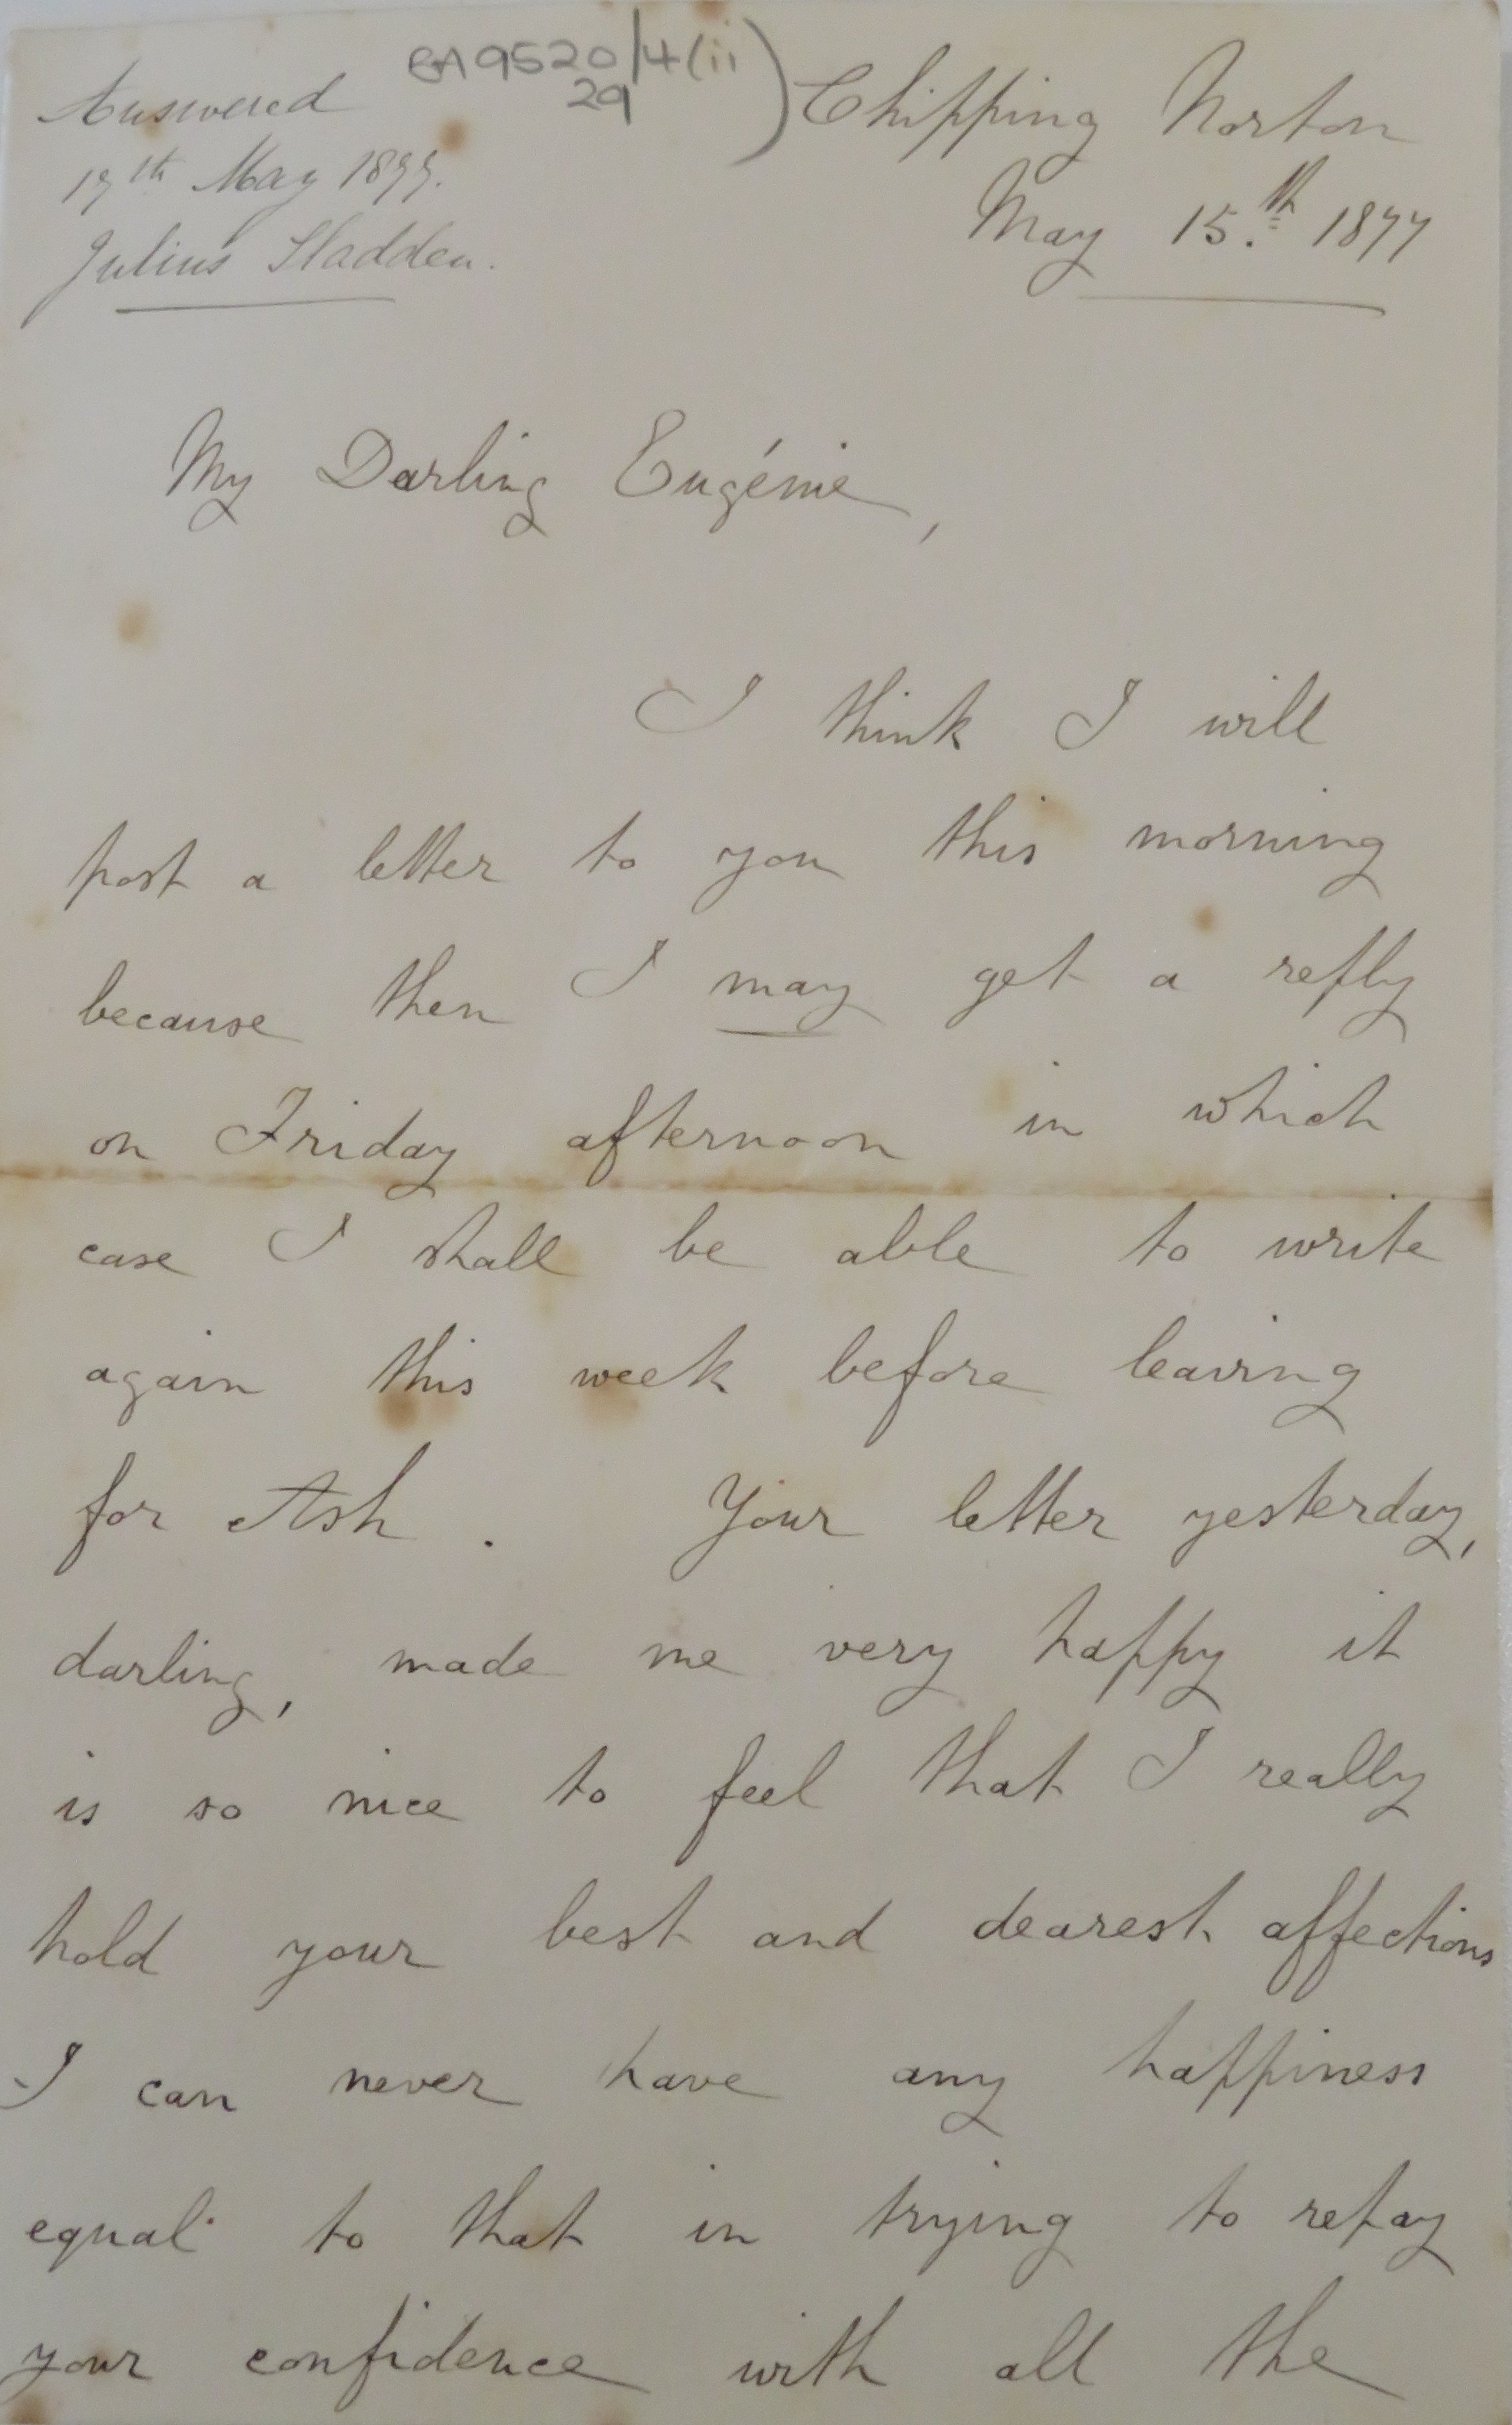 BA9520/4(ii)
29
Answered
17th May 1877.
Julius Sladden.
Chipping Norton
May 15.th 1877
My Darling Eugénie,
I think I will
post a letter to you this morning
because then I may get a reply
on Friday afternoon in which
case I shall be able to write
again this week before leaving
for Ash. Your letter yesterday,
darling, made me very happy it
is so nice to feel that I really
hold your best and dearest affections
I can never have any happiness
equal to that in trying to repay
your confidence with all the